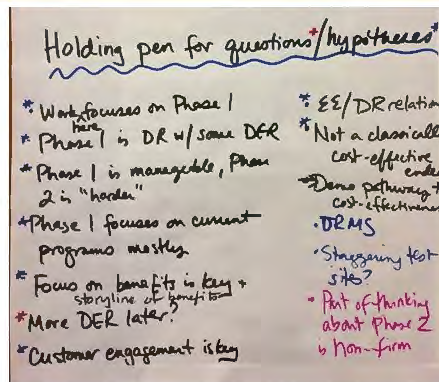 Holding pen for questions*/hypotheses*
* Work here focuses on Phase 1
* Phase 1 is DR w/ some DER
* Phase 1 is manageable, Phase
2 is "harder"
* Phase 1 focuses on current
programs mostly
* Focus on benefits is key +
storyline of benefits
* More DER later?
* Customer engagement is key
* EE/DR relation
* Not a classicall
cost-effective
ende
Demo pathway t
cost-effectivenes
• DRMS
• Staggering test
sites?
• Part of thinking
about Phase 2
is non-firm